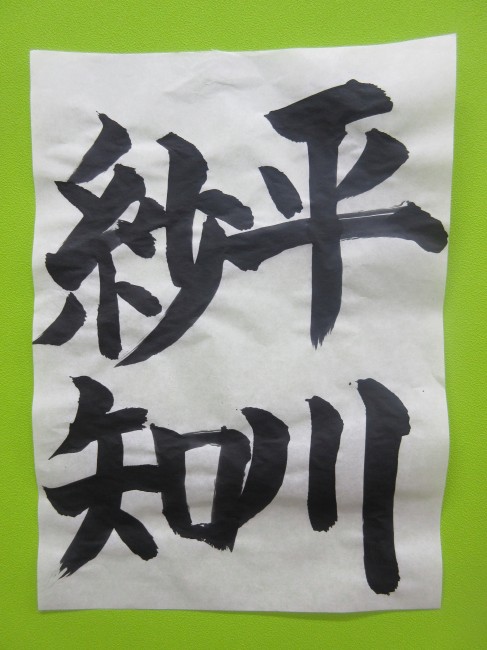 平川
紗知